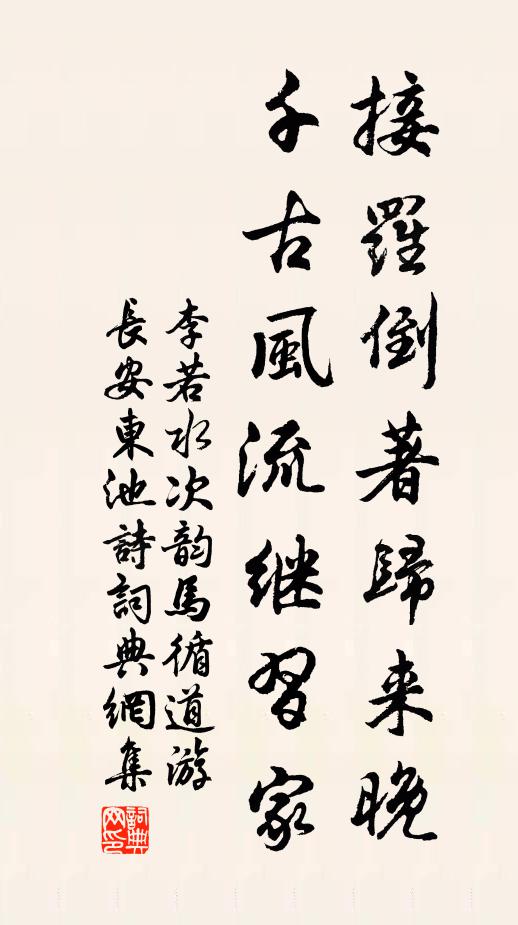 接羅倒著歸来晚
千古風流继習家
李若水次韵馬循道游
長安東池詩詞典網集
詞典
网印